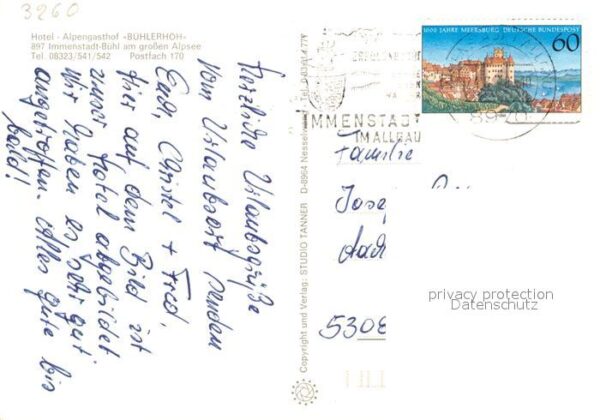 3260
Hotel - Alpengasthof «BÜHLERHÖH»
897 Immenstadt-Bühl am großen Alpsee
Tel. 08323/541/542 Postfach 170
Herzliche Urlaubsgrüße
vom Urlaubsort senden
Euch, Christel + Fred,
Hier auf dem Bild ist
unser Hotel abgebildet
Wir haben es sehr gut
angetroffen. Alles gute bis
bald!
Copyright und Verlag: STUDIO TANNER D-8964 Nesselwang
1000 JAHRE MEERSBURG DEUTSCHE BUNDESPOST
60
IMMENSTADT
IM ALLGÄU
Familie
Josef
530
privacy protection
Datenschutz